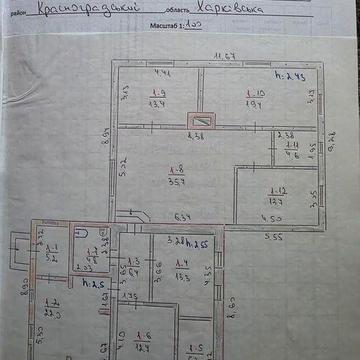 район Красноградський область Харківська
Масштаб 1:100
11,67
4.41
h=2.43
1-9
13,4
1-10
19,4
3,13
2,38
2,38
1-11
4,6
1,95
8,94
5,02
1-8
35,7
1-12
13,7
3,05
4,50
6,34
5,55
3,28
h=2,55
1-1
5,2
h=2,5
2,03
1-3
6,4
3,65
3,66
1-4
13,3
4,35
8,90
1-2
22,0
1,67
1,75
8,60
5,30
4,10
1-6
12,7
1-5
3,67